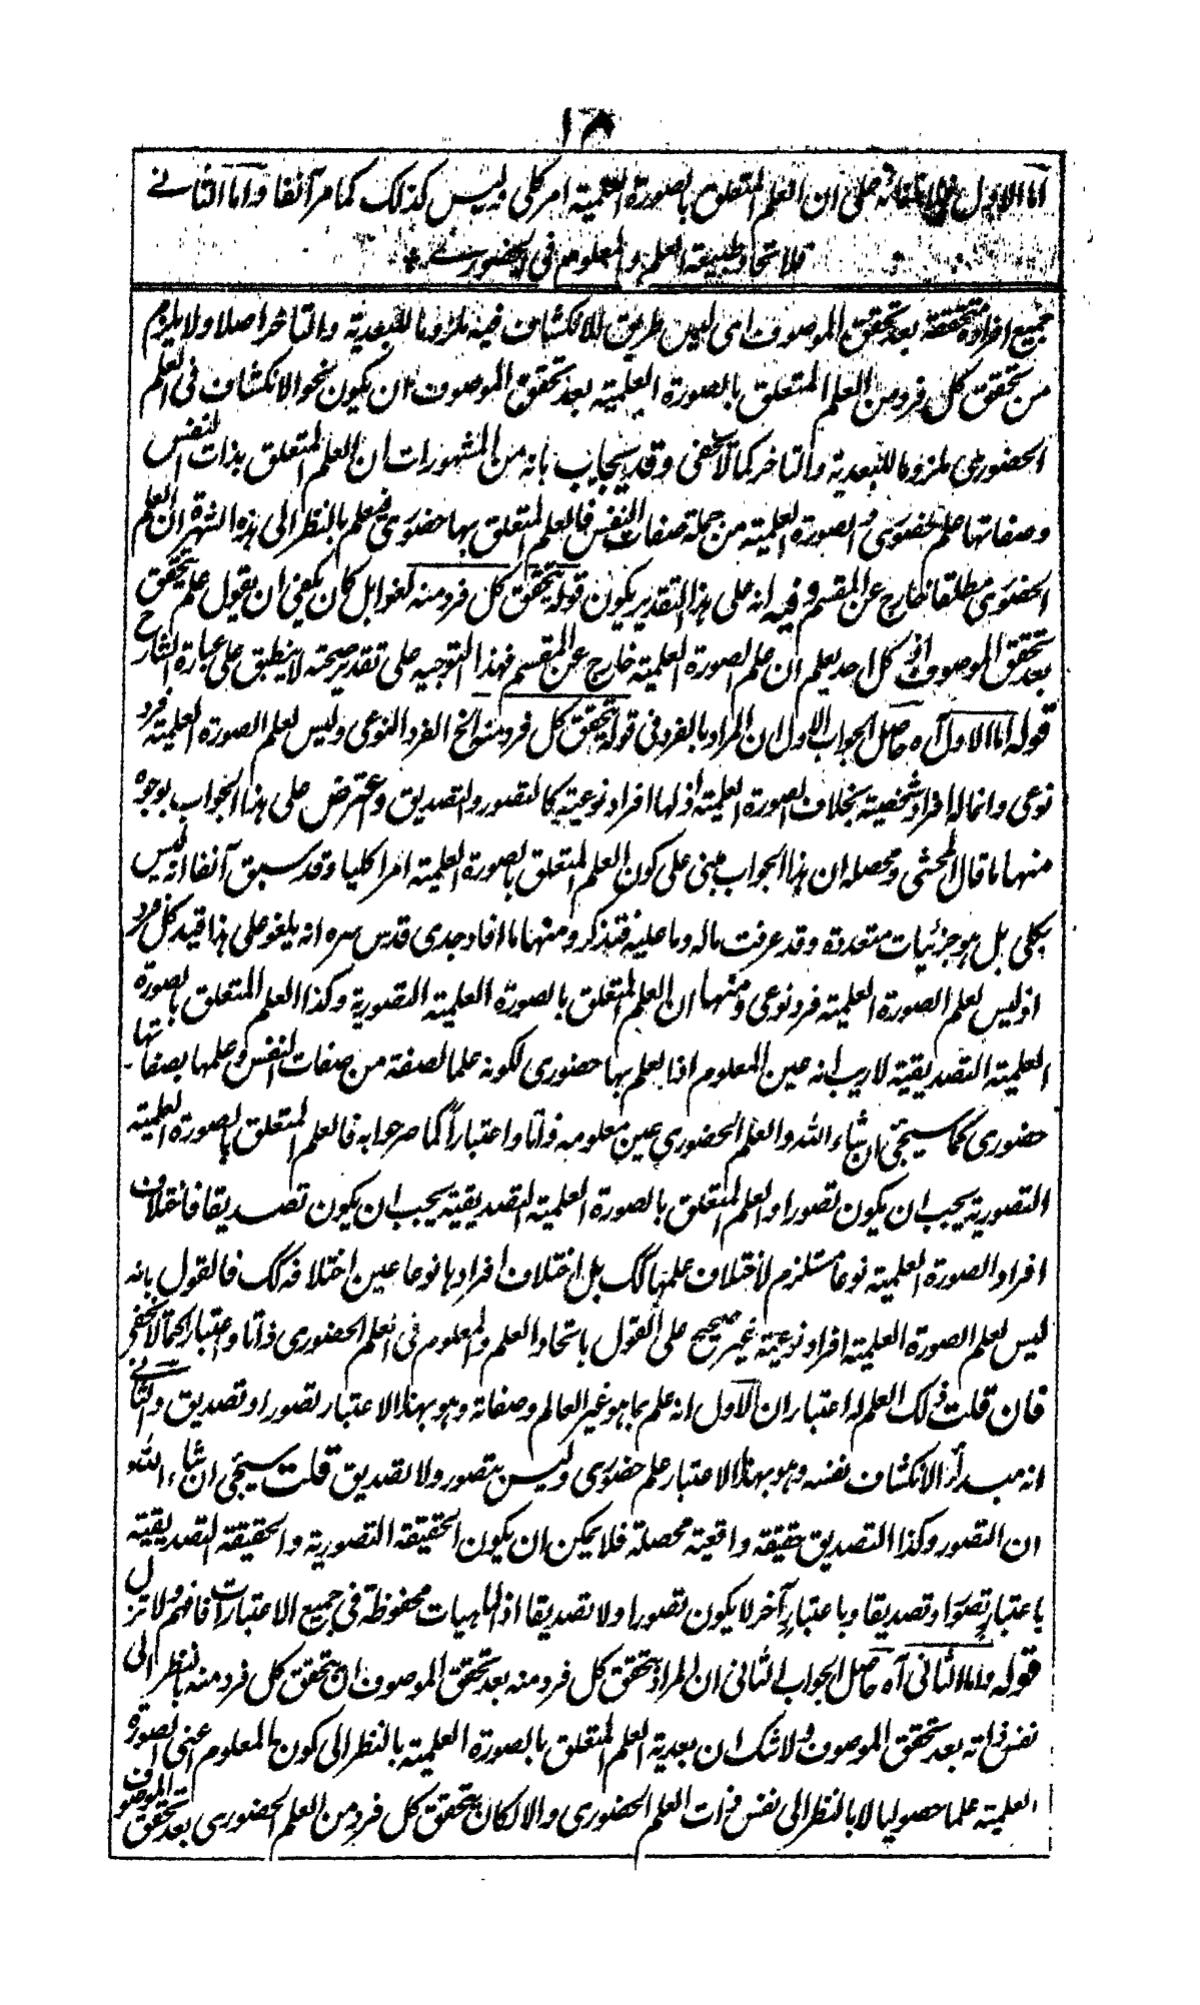 ١٨
اما الاول فلابتنائه على ان العلم المتعلق بالصورة العلمية امر كلى وليس كذلك كما مر آنفا واما الثانے
فلاتحاد طبيعة العلم والمعلوم فى الحضورے
جميع افراده متحققة بعد تحقق الموصوف اى ليس طريق الانكشاف فيه ملزوما للبعدية والتاخر اصلا ولا يلزم
من تحقق كل فرد من العلم المتعلق بالصورة العلمية بعد تحقق الموصوف ان يكون نحو الانكشاف فى العلم
الحضورى ملزوما للبعدية والتاخر كما لا يخفى وقد يجاب بانه من المشهورات ان العلم المتعلق بذات النفس
وصفاتها علم حضورى والصورة العلمية من جملة صفات النفس فالعلم المتعلق بها حضورى فيعلم بالنظر الى هذه الشهرة ان العلم
الحضورى مطلقا خارج عن المقسم وفيه انه على هذا التقدير يكون قوله يتحقق كل فرد منه لغوا بل كان يكفى ان يقول علم يتحقق
بعد تحقق الموصوف اذ كل احد يعلم ان علم الصورة العلمية خارج عن المقسم فهذا التوجيه على تقدير صحته لا ينطبق على عبارة الشارح
قوله اما الاول آه حاصل الجواب الاول ان المراد بالفرد فى قوله يتحقق كل فرد منه الخ الفرد النوعى وليس لعلم الصورة العلمية فرد
نوعى وانما له افراد شخصية بخلاف الصورة العلمية اذ لها افراد نوعية كالتصور والتصديق واعترض على هذا الجواب بوجوه
منها ما قال المحشى ومحصله ان هذا الجواب مبنى على كون العلم المتعلق بالصورة العلمية امرا كليا وقد سبق آنفا انه ليس
بكلى بل هو جزئيات متعددة وقد عرفت ماله وما عليه فتذكر ومنها ما افاد جدى قدس سره انه يلغو على هذا قيد كل فرد
اذ ليس لعلم الصورة العلمية فرد نوعى ومنها ان العلم المتعلق بالصورة العلمية التصورية وكذا العلم المتعلق بالصورة
العلمية التصديقية لاريب انه عين المعلوم اذ العلم بها حضورى لكونه علما لصفة من صفات النفس وعلمها بصفاتها
حضورى كما سيجئ ان شاء الله والعلم الحضورى عين معلومه ذاتا واعتبارا كما صرحوا به فالعلم المتعلق بالصورة العلمية
التصورية يجب ان يكون تصورا والعلم المتعلق بالصورة العلمية التصديقية يجب ان يكون تصديقا فاختلاف
افراد الصورة العلمية نوعا مستلزم لاختلاف علمها كك بل اختلاف افرادها نوعا عين اختلافه كك فالقول بانه
ليس لعلم الصورة العلمية افراد نوعية غير صحيح على القول باتحاد العلم والمعلوم فى العلم الحضورى ذاتا واعتبارا كما لا يخفى
فان قلت ذلك العلم له اعتباران الاول انه علم بما هو غير العالم وصفاته وهو بهذا الاعتبار تصور او تصديق والثانے
انه مبدأ لانكشاف نفسه وهو بهذا الاعتبار علم حضورى وليس بتصور ولا تصديق قلت سيجئ ان شاء الله
ان التصور وكذا التصديق حقيقة واقعية محصلة فلا يمكن ان يكون الحقيقة التصورية والحقيقة التصديقية
باعتبار تصورا وتصديقا وباعتبار آخر لا يكون تصورا ولا تصديقا اذ الماهيات محفوظة فى جميع الاعتبارات فافهم ولا تزل
قوله واما الثانى آه حاصل الجواب الثانى ان المراد بتحقق كل فرد منه بعد تحقق الموصوف ان يتحقق كل فرد منه بالنظر الى
نفس ذاته بعد تحقق الموصوف ولا شك ان بعدية العلم المتعلق بالصورة العلمية بالنظر الى كون المعلوم اعنى الصورة
العلمية علما حصوليا لا بالنظر الى نفس ذات العلم الحضورى والا لكان يتحقق كل فرد من العلم الحضورى بعد تحقق الموصوف